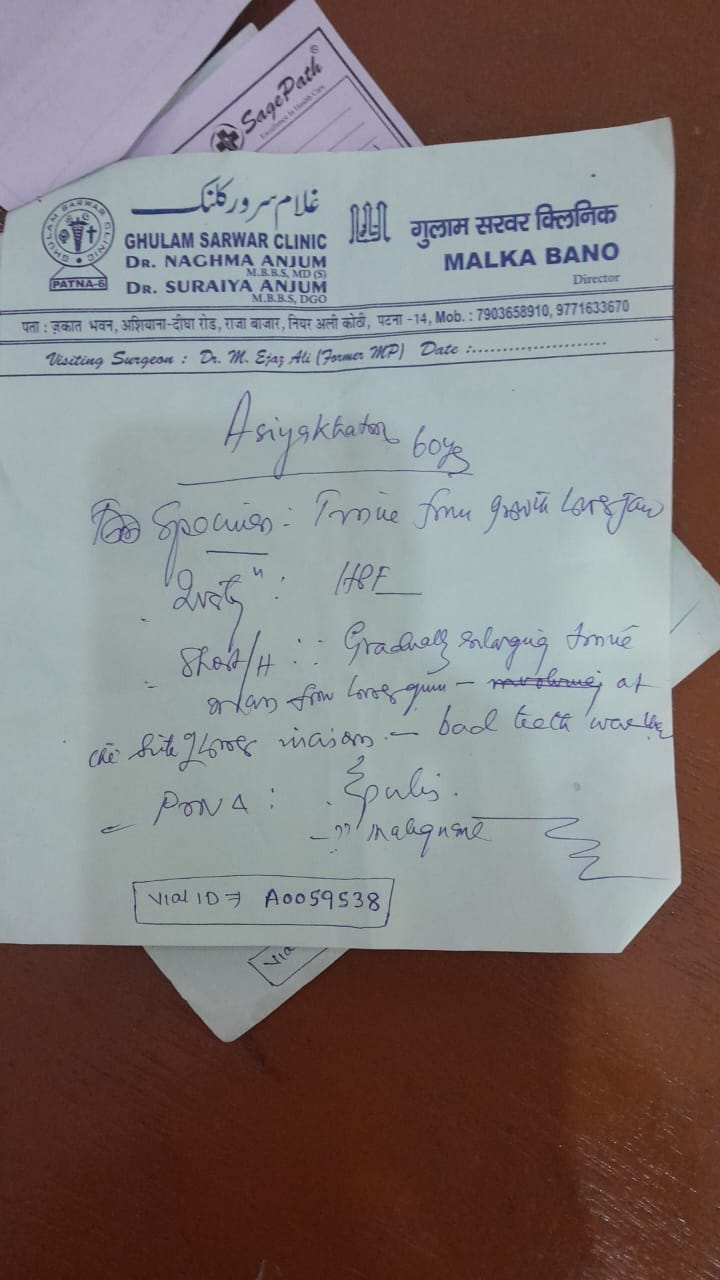 SagePath®
Excellence In Health Care
غلام سرور کلنک
GHULAM SARWAR CLINIC
PATNA-6
DR. NAGHMA ANJUM
M.B.B.S, MD (S)
DR. SURAIYA ANJUM
M.B.B.S, DGO
गुलाम सरवर क्लिनिक
MALKA BANO
Director
पता : ज़कात भवन, अशियाना-दीघा रोड, राजा बाजार, नियर अली कोठी, पटना -14, Mob. : 7903658910, 9771633670
Visiting Surgeon : Dr. M. Ejaz Ali (Former MP) Date :......................
Asiyakhatoon 60ys
Specimen : Tissue from growth lower jaw
: HPE
Short/H : Gradually enlarging tissue
from lower gum - at
the site of lower incisors - bad teeth
Prov Δ : Epulis.
- ?? malignant
Vial ID ⇒ A0059538
Via